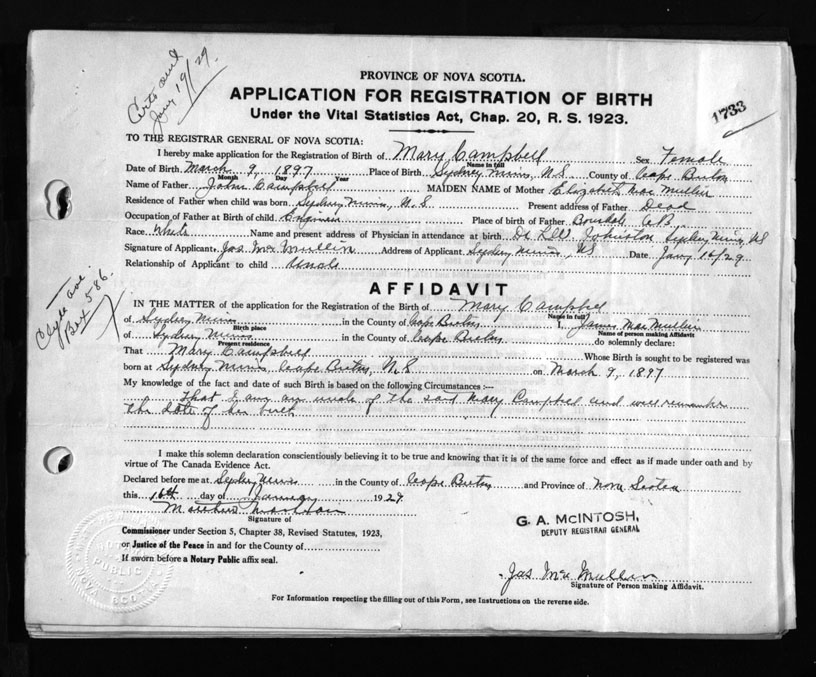 Jany 19/29
PROVINCE OF NOVA SCOTIA.
APPLICATION FOR REGISTRATION OF BIRTH
Under the Vital Statistics Act, Chap. 20, R. S. 1923.
1733
TO THE REGISTRAR GENERAL OF NOVA SCOTIA:
I hereby make application for the Registration of Birth of Mary Campbell Sex Female
Name in full
Date of Birth March 9, 1897 Place of Birth Sydney Mines, N.S County of Cape Breton
Month Day Year
Name of Father John Campbell MAIDEN NAME of Mother Elizabeth MacMullin
Residence of Father when child was born Sydney Mines, N.S Present address of Father Dead
Occupation of Father at Birth of child Engineer Place of birth of Father Boisdale C.B.
Race White Name and present address of Physician in attendance at birth Dr Johnston Sydney Mines NS
Signature of Applicant Jas. MacMullin Address of Applicant Sydney Mines, NS Date Jany 16/29
Relationship of Applicant to child
Clyde Ave.
Box 586.
AFFIDAVIT
IN THE MATTER of the application for the Registration of the Birth of Mary Campbell
Name in full
of Sydney Mines in the County of Cape Breton I, James MacMullin
Birth place Name of person making Affidavit
of Sydney Mines in the County of Cape Breton do solemnly declare:
Present residence
That Mary Campbell Whose Birth is sought to be registered was
born at Sydney Mines Cape Breton, N.S on March 9, 1897
My knowledge of the fact and date of such Birth is based on the following Circumstances :—
That I am an uncle of the said Mary Campbell and well remember
the date of her birth
I make this solemn declaration conscientiously believing it to be true and knowing that it is of the same force and effect as if made under oath and by
virtue of The Canada Evidence Act.
Declared before me at Sydney Mines in the County of Cape Breton and Province of Nova Scotia
this 16th day of January 1929
Signature of
G. A. McINTOSH,
DEPUTY REGISTRAR GENERAL
Commissioner under Section 5, Chapter 38, Revised Statutes, 1923,
or Justice of the Peace in and for the County of
If sworn before a Notary Public affix seal.
Jas MacMullin
Signature of Person making Affidavit.
For Information respecting the filling out of this Form, see Instructions on the reverse side.